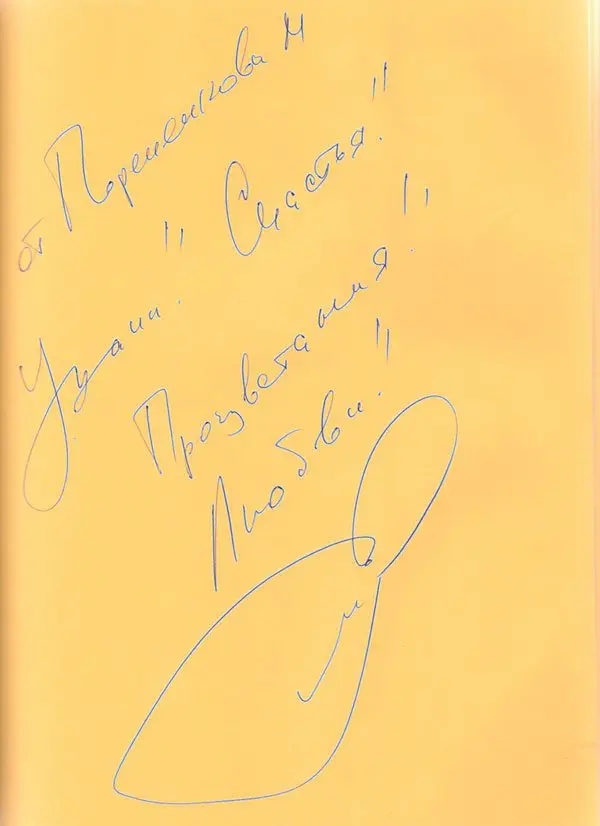 от Пореченкова М
Удачи!!! Счастья!!!
Процветания!!!
Любви!!!